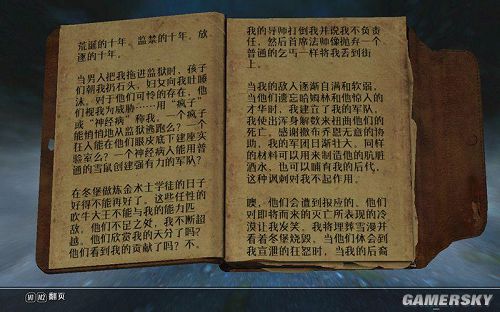 荒诞的十年。监禁的十年。放
逐的十年。
当男人把我拖进监狱时，孩子
们朝我扔石头，妇女向我吐唾
沫。对于他们可怜的存在，他
们视我为威胁……用“疯子”
或“神经病”称我。一个疯子
能悄悄地从监狱逃跑么？一个
狂人能在他们眼皮底下建座实
验室么？一个神经病人能用普
通的雪鼠创建强有力的军队？
在冬堡做炼金术士学徒的日子
好得不能再好了。这些任性的
吹牛大王不能与我的能力匹
敌，他们不足之处，我不断超
越。他们欣赏我的天分了吗？
他们看到我的贡献了吗？不。
我的导师打倒我并说我不负责
任，然后首席法师像抛弃一个
普通的乞丐一样将我丢到街
上。
当我的敌人逐渐自满和软弱，
当他们遗忘哈姆林和他惊人的
才华时，我建立了我的军队，
我使出浑身解数来扭曲他们的
死亡。感谢撒布乔恩无意的协
助，我的军团日渐壮大，同样
的材料可以用来制造他的肮脏
酒水，也可以哺育我的后代，
这种讽刺对我不起作用。
噢，他们会遭到报应的，他们
对即将而来的灭亡所表现的冷
漠让我发笑。我将埋葬雪漫并
看着冬堡烧毁，当他们体会到
我宣泄的狂怒时，当我的后裔
翻页
GAMERSKY